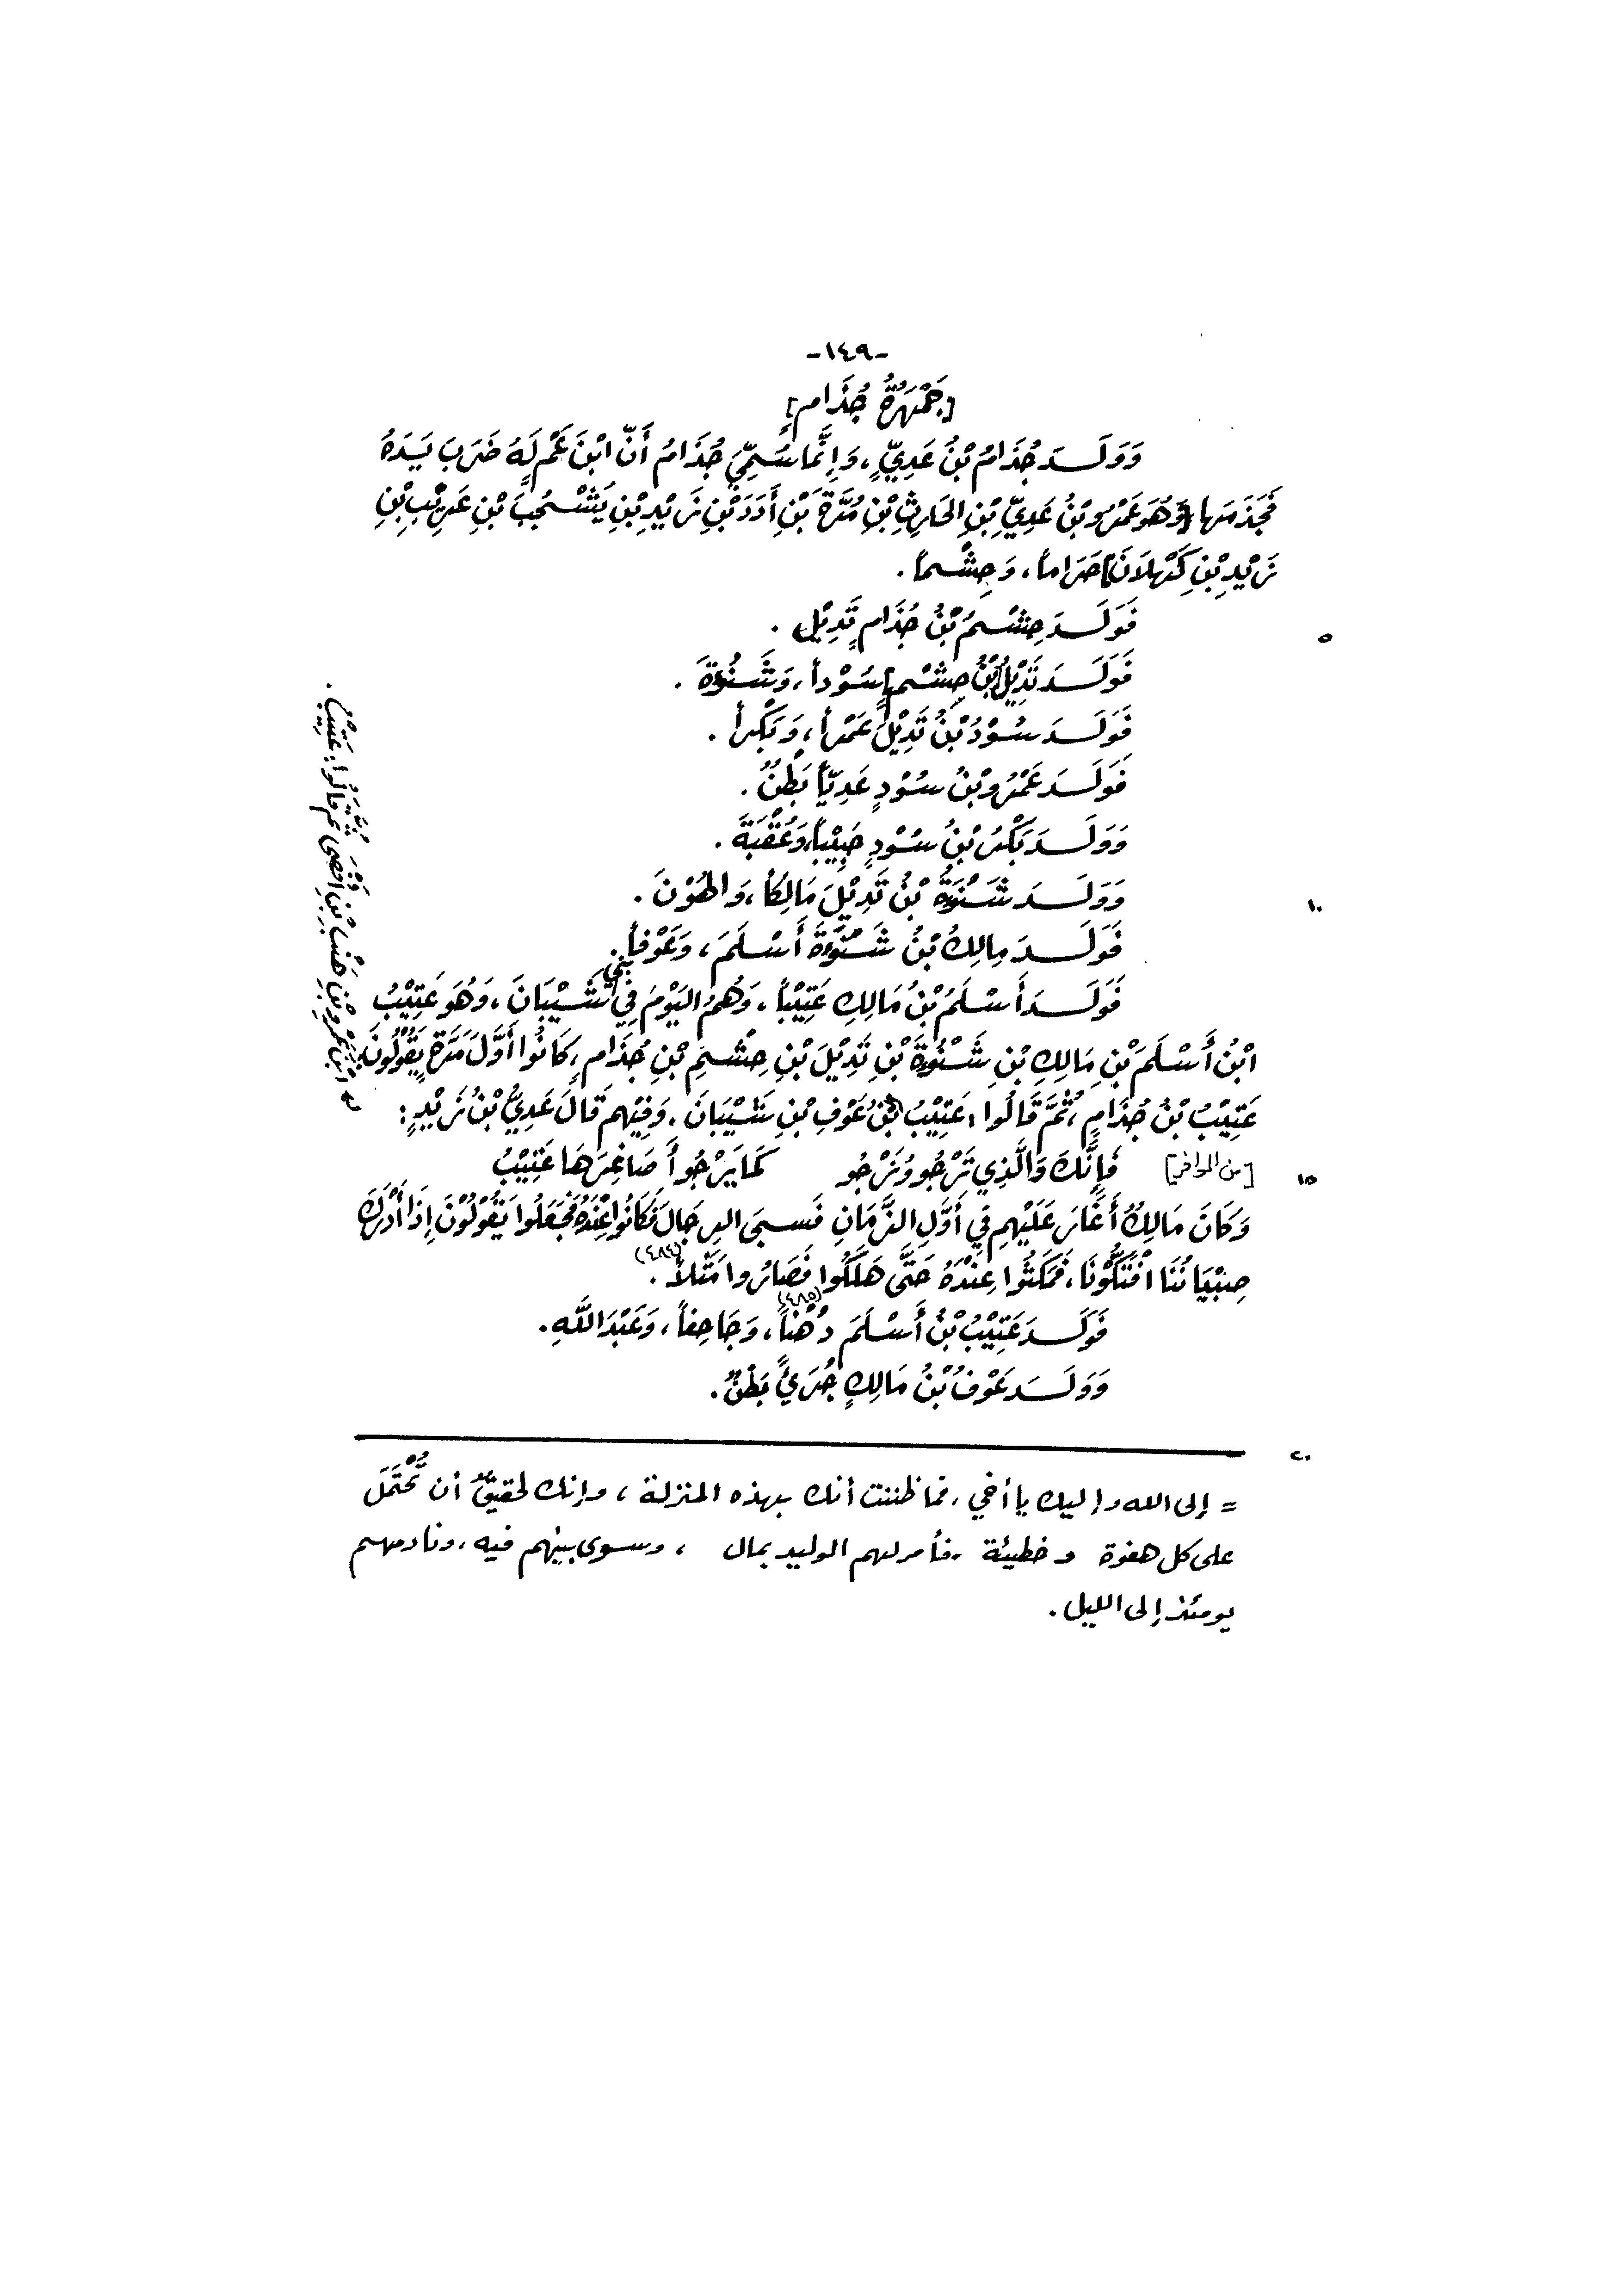 -١٤٩-
[جَمْهَرَةُ جُذَامٍ]
وَوَلَـدَ جُذَامُ بْنُ عَدِيٍّ، وَإِنَّمَا سُمِّيَ جُذَامُ أَنَّ ابْنَ عَمٍّ لَهُ ضَرَبَ يَدَهُ
فَجَذَمَهَا [وَهُوَ عَمْرُو بْنُ عَدِيِّ بْنِ الحَارِثِ بْنِ مُرَّةَ بْنِ أُدَدَ بْنِ زَيْدِ بْنِ يَشْحُبَ بْنِ عَرِيْبِ بْنِ
زَيْدِ بْنِ كَهْلَانَ] حَرَاماً، وَحِشْماً.
فَوَلَـدَ حِشْمُ بْنُ جُذَامٍ تَدِيْلَ.
٥
فَوَلَـدَ تَدِيْلُ [بْنُ حِشْمٍ] سُوْداً، وَشَنُوْءَةَ.
فَوَلَـدَ سُوْدُ بْنُ تَدِيْلَ عَمْراً، وَبَكْراً.
فَوَلَـدَ عَمْرُو بْنُ سُوْدٍ عَدِيّاً بَطْنٌ.
وَوَلَـدَ بَكْرُ بْنُ سُوْدٍ حَبِيْباً، وَعُقْبَةَ.
وَوَلَـدَ شَنُوْءَةُ بْنُ تَدِيْلَ مَالِكاً، وَالهُوْنَ.
١٠
فَوَلَـدَ مَالِكُ بْنُ شَنُوْءَةَ أَسْلَمَ، وَعَوْفاً.
فَوَلَـدَ أَسْلَمُ بْنُ مَالِكٍ عَتِيْباً، وَهُمُ اليَوْمَ فِي بَنِي شَيْبَانَ، وَهُوَ عَتِيْبُ
ابْنُ أَسْلَمَ بْنِ مَالِكِ بْنِ شَنُوْءَةَ بْنِ تَدِيْلَ بْنِ حِشْمِ بْنِ جُذَامٍ، كَانُوا أَوَّلَ مَرَّةٍ يَقُوْلُونَ:
عَتِيْبُ بْنُ جُذَامٍ، ثُمَّ قَالُوا: عَتِيْبُ بْنُ عَوْفِ بْنِ شَيْبَانَ. وَفِيْهِمْ قَالَ عَدِيُّ بْنُ زَيْدٍ:
[من الوافر] فَإِنَّكَ وَالَّذِي تَرْجُو وَنَرْجُو كَمَا يَرْجُو أَصَاغِرَهَا عَتِيْبُ
١٥
وَكَانَ مَالِكٌ أَغَارَ عَلَيْهِمْ فِي أَوَّلِ الزَّمَانِ فَسبَى الرِجَالَ فَكَانُوا عِنْدَهُ فَجَعَلُوا يَقُوْلُوْنَ إِذَا أَدْرَكَ
صِبْيَانُنَا افْتَكُّوْنَا، فَمَكَثُوا عِنْدَهُ حَتَّى هَلَكُوا فَصَارُوا مَثَلاً (٤٨٤).
فَوَلَـدَ عَتِيْبُ بْنُ أَسْلَمَ دُهْناً (٤٨٥)، وَجَاحِفاً، وَعَبْدَ اللَّهِ.
وَوَلَـدَ عَوْفُ بْنُ مَالِكٍ جُرَيًّ بَطْنٌ.
٢٠
= إلى الله وإليك يا أخي، فما ظننت أنك بهذه المنزلة، وإنك لحقيقٌ أن تُحْتَمَلَ
على كل هفوة وخطيئة، فأمر لهم الوليد بمال ، وسوى بينهم فيه، ونادمهم
يومئذ إلى الليل.